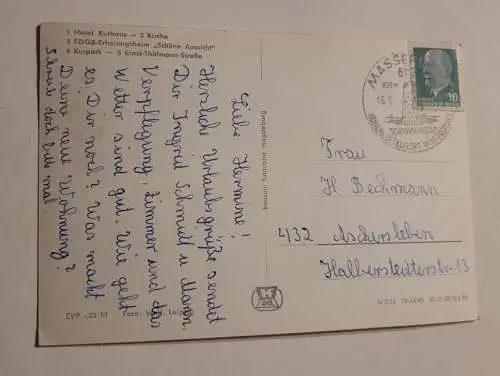 1 Hotel Kurhaus — 2 Kirche
3 FDGB-Erholungsheim „Schöne Aussicht"
4 Kurpark — 5 Ernst-Thälmann-Straße
Liebe Hermine!
Herzliche Urlaubsgrüße sendet
Dir Ingrid Schmidt u. Maren.
Verpflegung, Zimmer und das
Wetter sind gut. Wie geht
es Dir noch? Was macht
Deine neue Wohnung?
Schreib doch mal.
EVP -,25 M
Foto:
MASSER
16.
10
Frau
H. Beckmann
432 Aschersleben
Halberstädterstr. 13